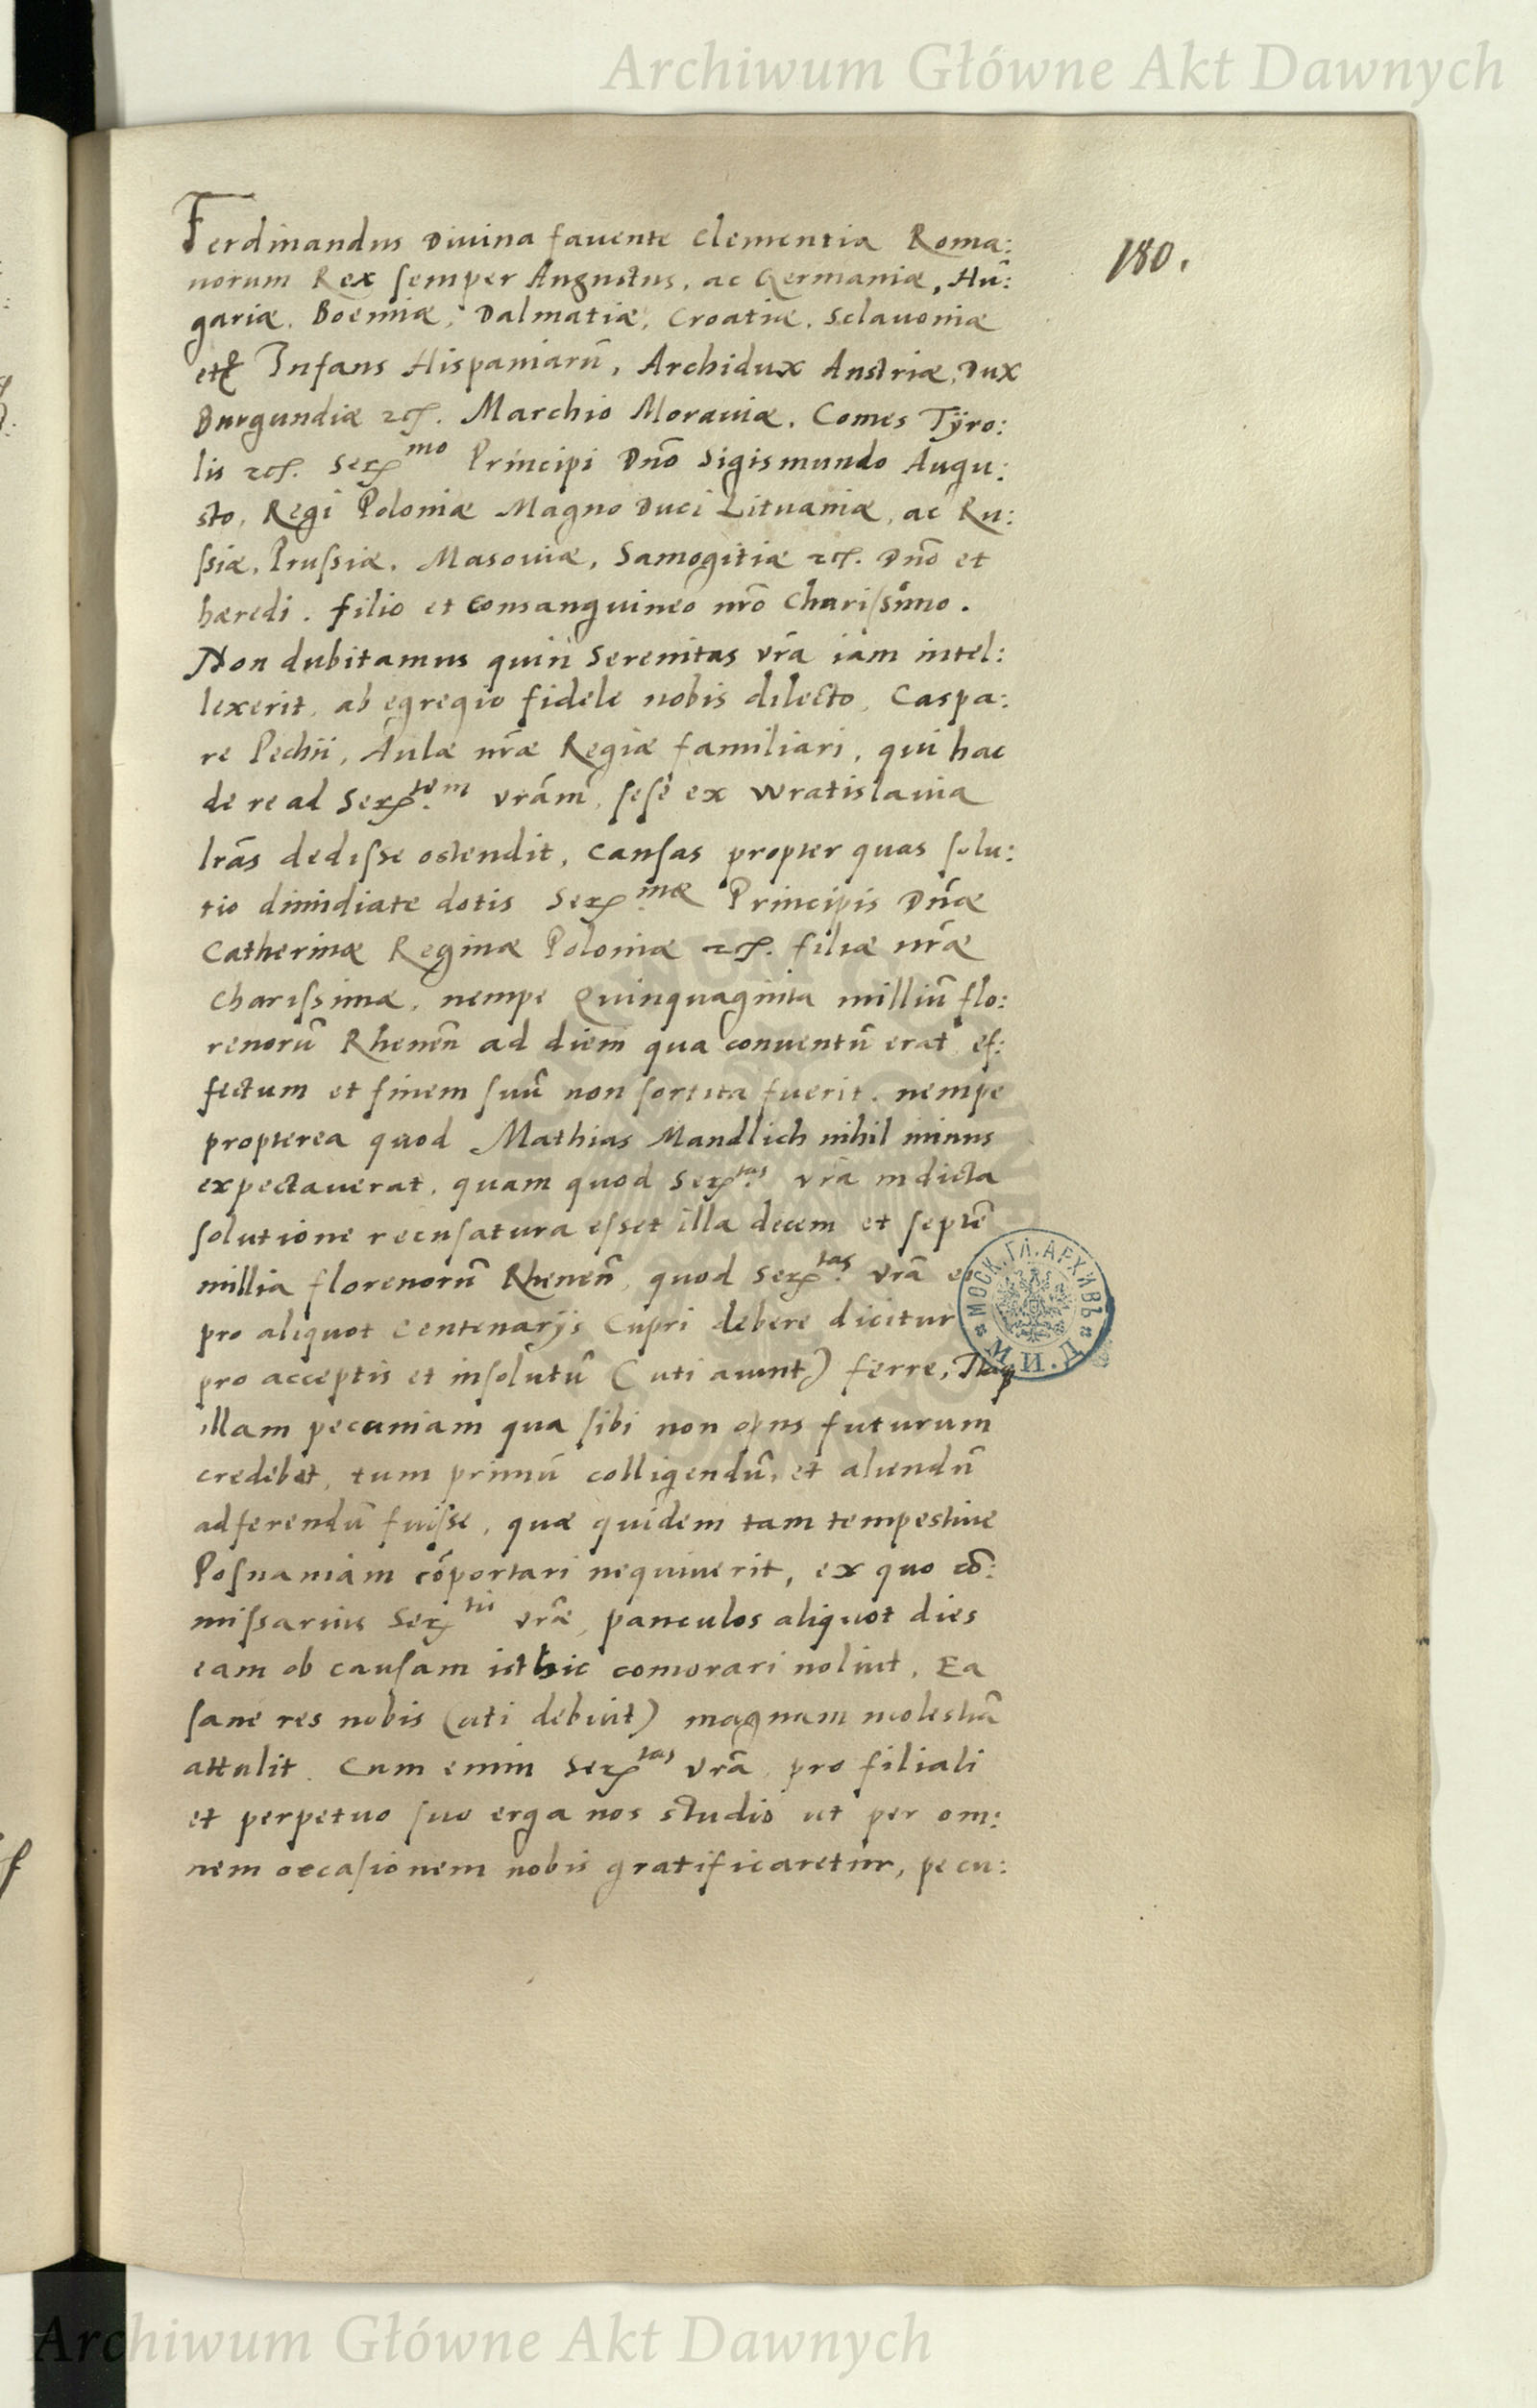 Archiwum Główne Akt Dawnych
180.
Ferdinandus Diuina fauente Clementia Roma:
norum Rex semper Augustus, ac Germaniæ, Hū:
gariæ, Boemiæ, Dalmatiæ, Croatiæ, Sclauoniæ
Infans Hispaniarū, Archidux Austriæ, Dux
Burgundiæ &c. Marchio Morauiæ, Comes Tÿro:
lis &c. Sermo Principi Dnō Sigismundo Augu:
sto, Regi Poloniæ Magno Duci Lituaniæ, ac Ru:
ssiæ, Prussiæ, Masouiæ, Samogitiæ &c. Dnō et
hæredi. filio et Consanguineo nrō Charissimo.
Non dubitamus quin Serenitas vrā iam intel:
lexerit, ab egregio fidele nobis dilecto, Caspa:
re Pechii, Aulæ nrāe Regiæ familiari, qui hac
de re ad Sertem vrām, sese ex Wratislauia
lrās dedisse ostendit, causas propter quas solu:
tio dimidiate dotis Sermæ Principis Dnāe
Catherinæ Reginæ Poloniæ &c. filiæ nrāe
Charissimæ, nempe Quinquaginta milliū flo:
renorū Rhenen̄ ad diem qua conuentū erat ef:
fectum et finem suū non sortita fuerit. nempe
propterea quod Mathias Mandlich nihil minus
expectauerat, quam quod Sertas vrā in dicta
solutione recusatura esset illa decem et septē
millia florenorū Rhenen̄, quod Sertas vrā ei
pro aliquot Centenarijs Cupri debere dicitur
pro acceptis et insolutū (uti aiunt) ferre, Itaq
illam pecuniam qua sibi non opus futurum
credebat, tum primū colligendū, et aliundū
adferendū fuisse, quæ quidem tam tempestiue
Posnaniam cōportari nequiuerit, ex quo cō:
missarius Sertis vrāe, panculos aliquot dies
eam ob causam isthic comorari noluit. Ea
sane res nobis (uti debuit) magnam molestiā
attulit. Cum enim Sertas vrā, pro filiali
et perpetuo suo erga nos studio ut per om:
nem occasionem nobis gratificaretur, pecu:
МОСК. ГЛ. АРХИВЪ
М. И. Д.
Archiwum Główne Akt Dawnych